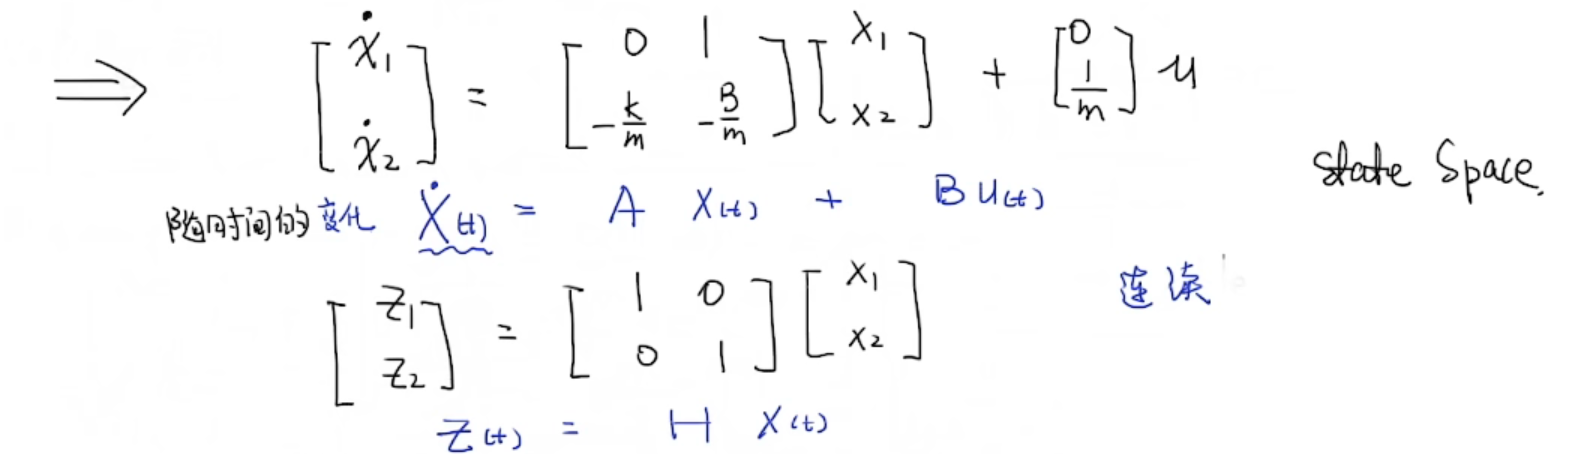 ⇒ [ẋ₁ ẋ₂] = [0 1 -k/m -B/m] [x₁ x₂] + [0 1/m] u
State Space.
随时间的变化 Ẋ(t) = A X(t) + B u(t)
连续
[z₁ z₂] = [1 0 0 1] [x₁ x₂]
Z(t) = H X(t)